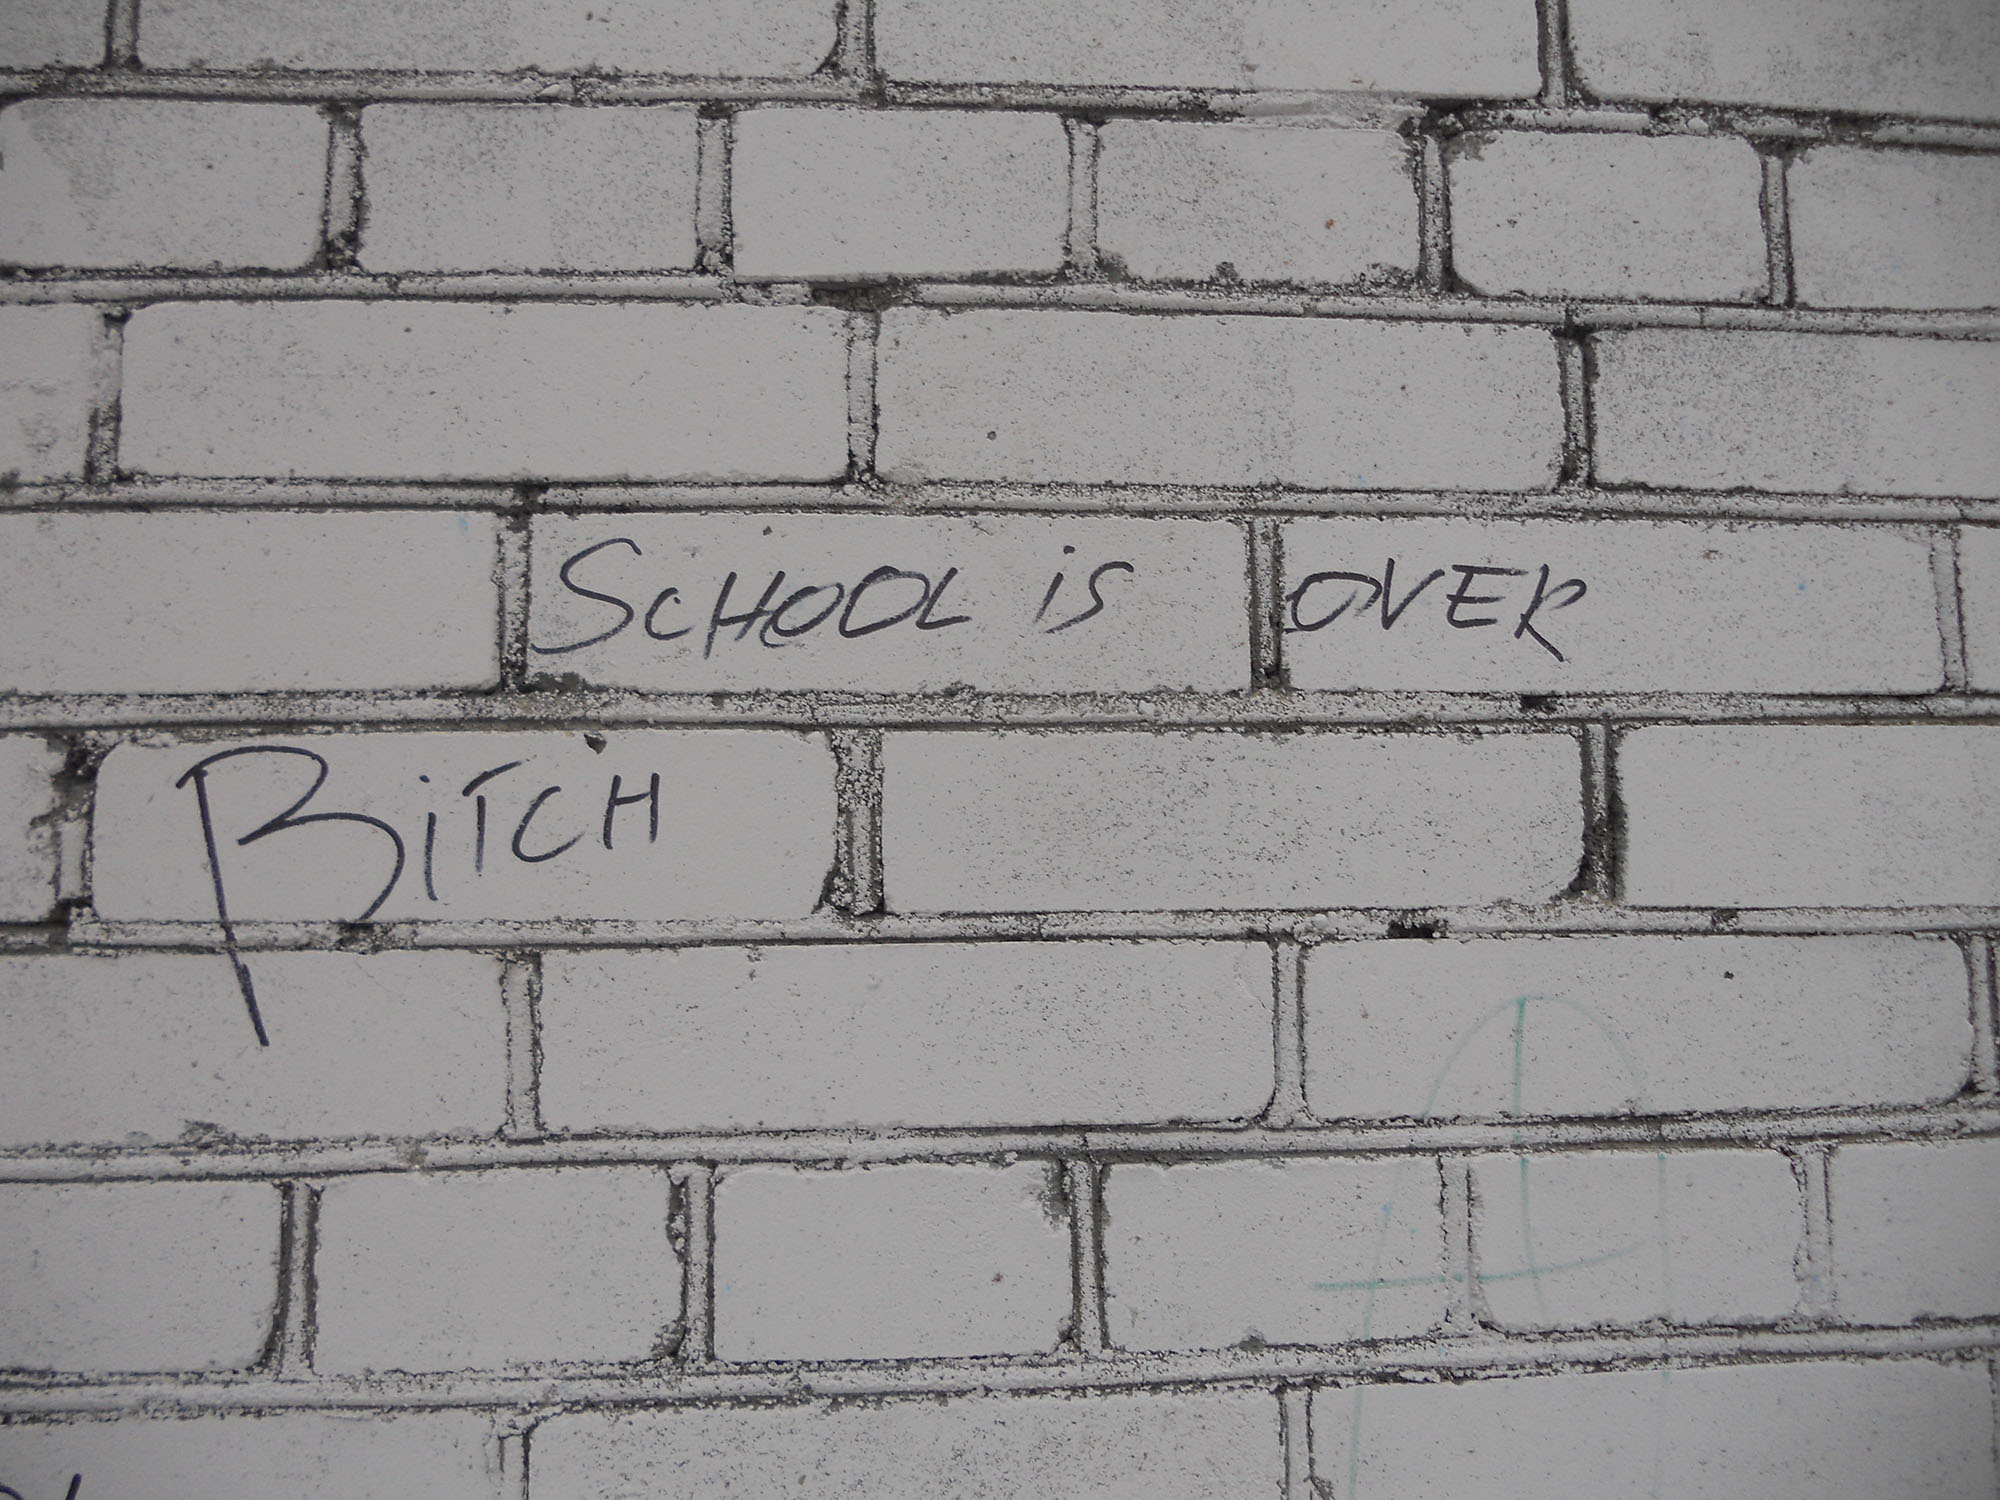 SCHOOL iS OVER
BiTCH